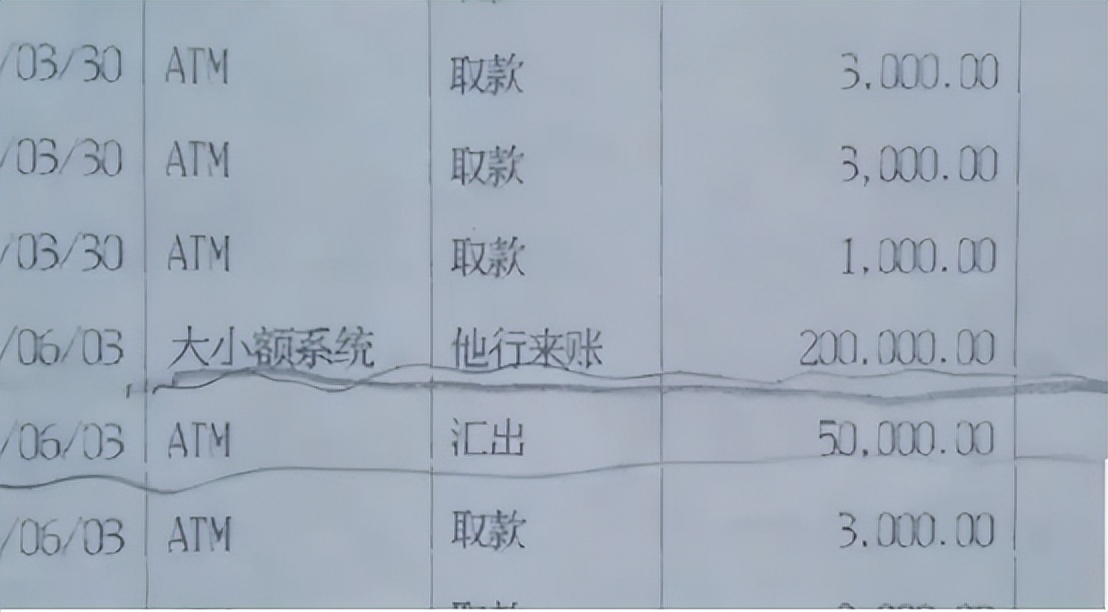 /03/30 ATM 取款 3,000.00
/03/30 ATM 取款 3,000.00
/03/30 ATM 取款 1,000.00
/06/03 大小额系统 他行来账 200,000.00
/06/03 ATM 汇出 50,000.00
/06/03 ATM 取款 3,000.00